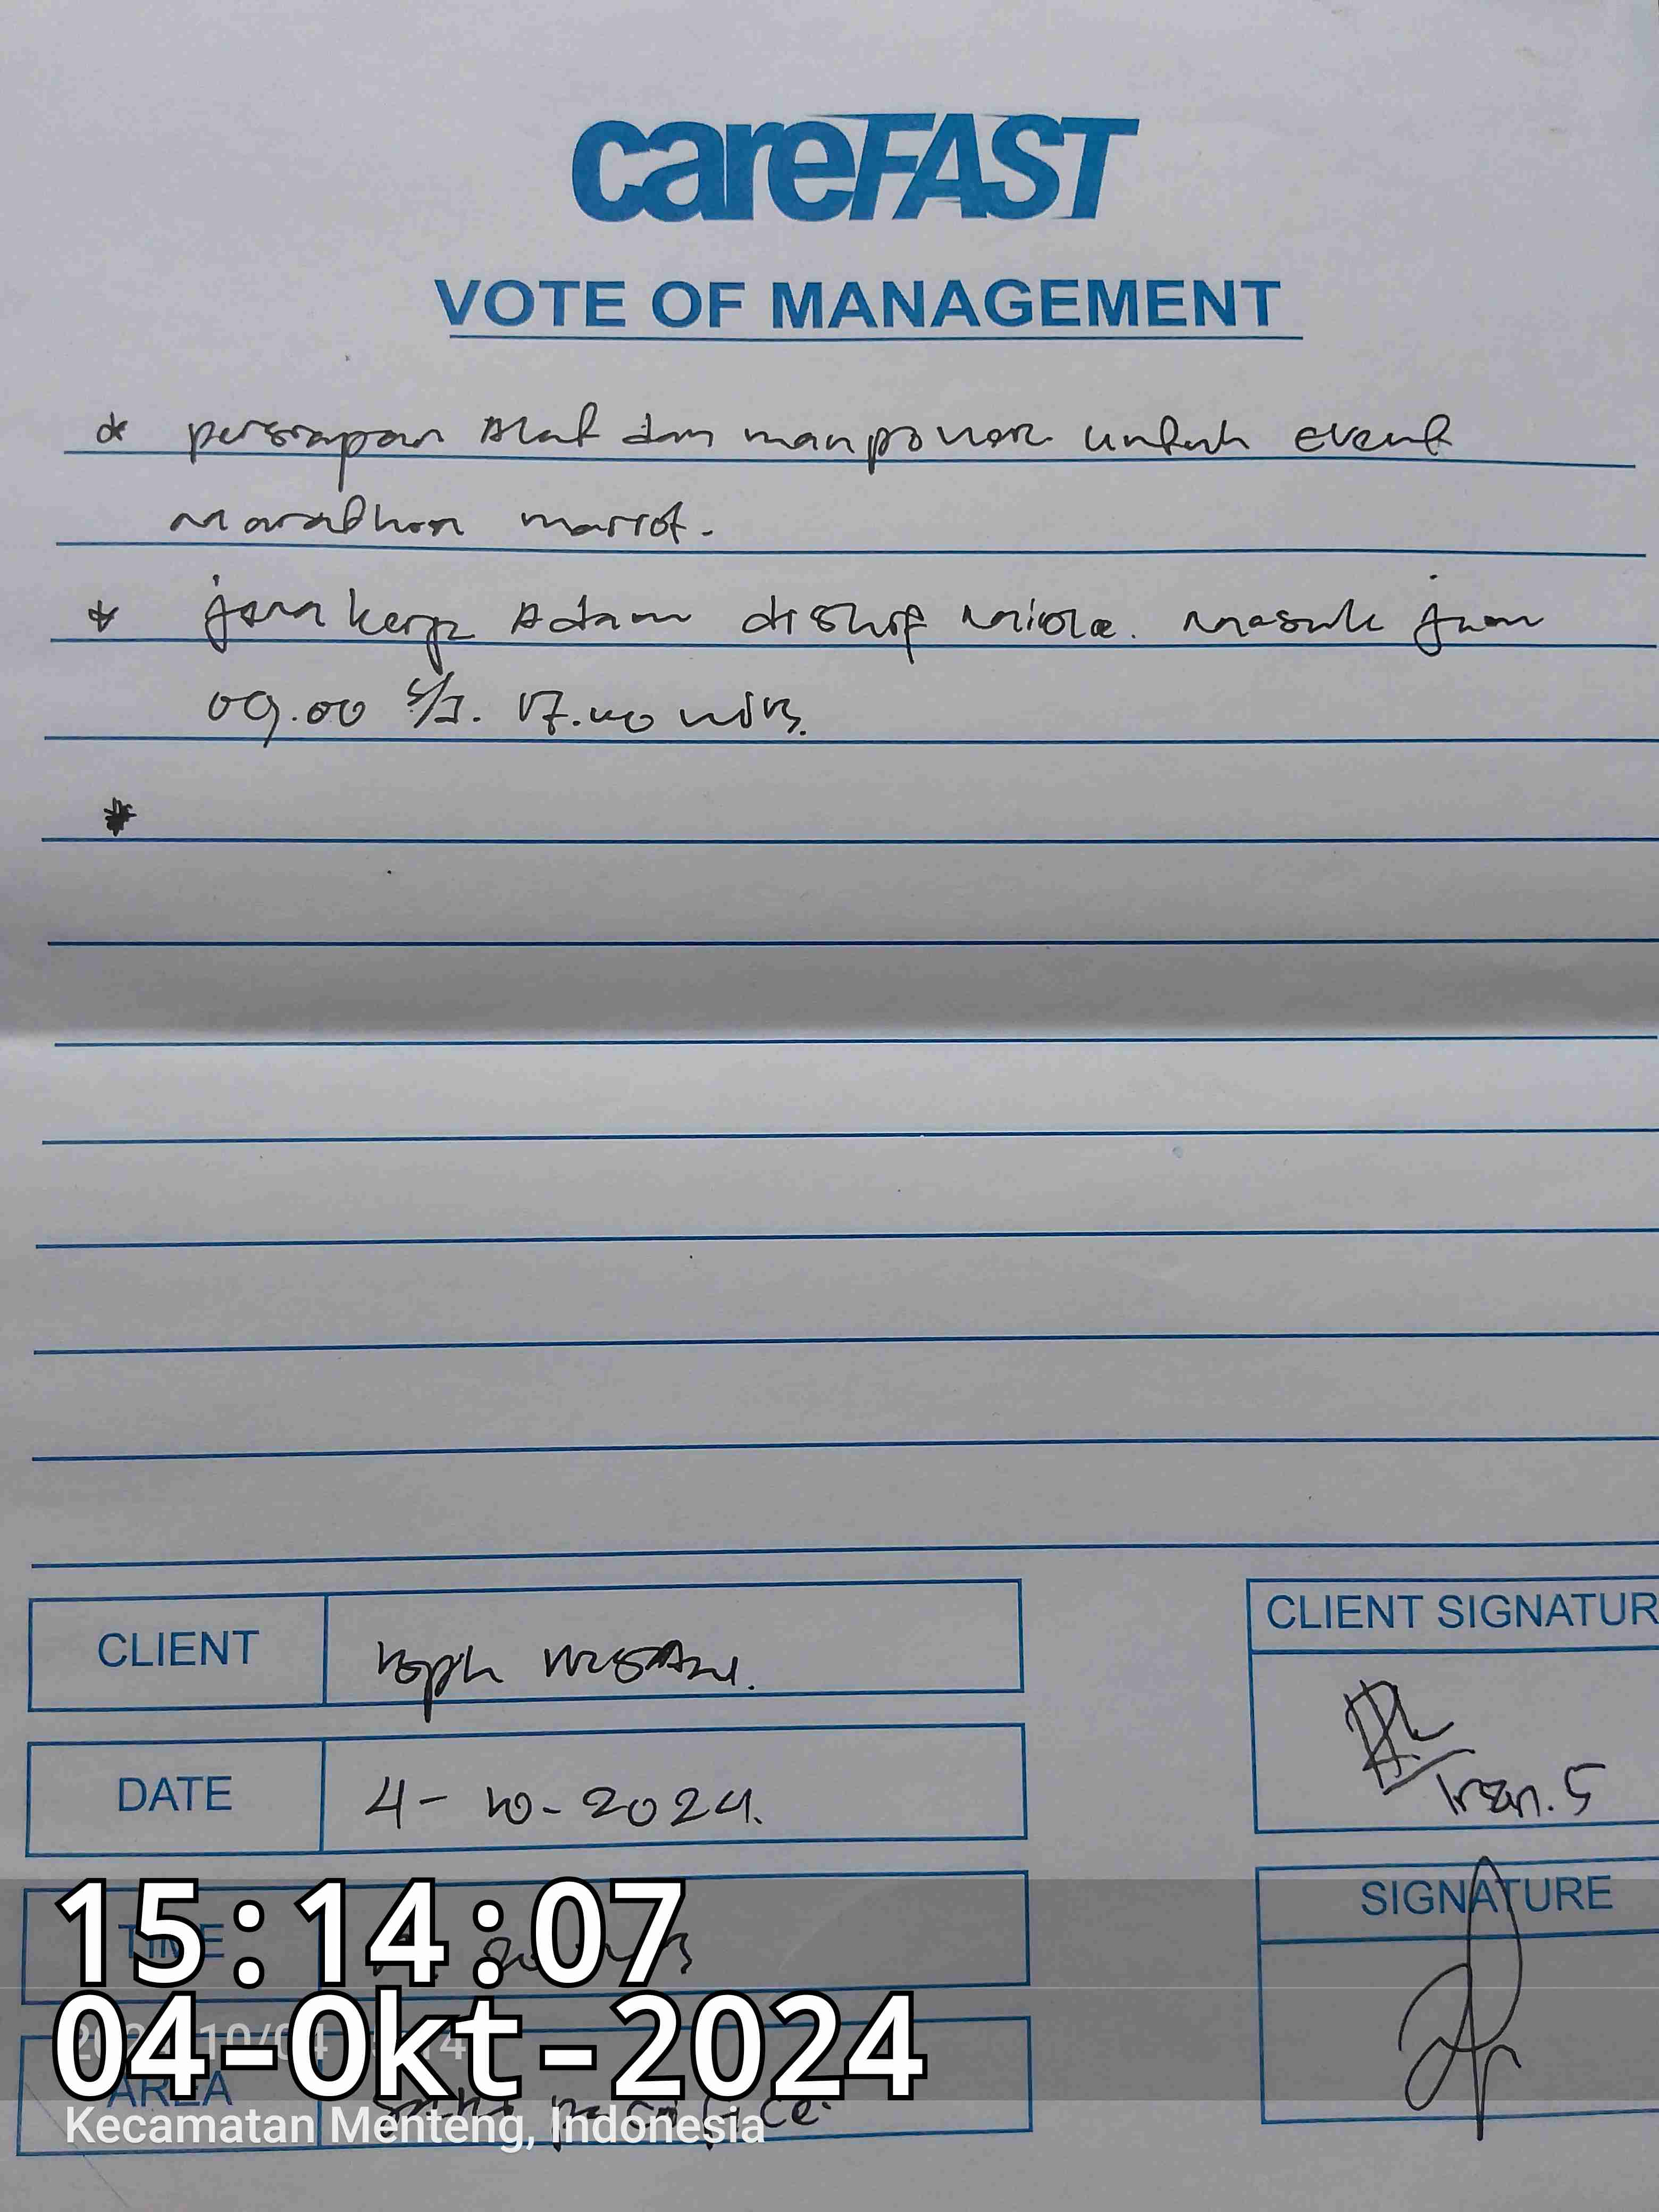 careFAST
VOTE OF MANAGEMENT
* persiapan Alat dan manpower untuk event
marathon
* jam kerja Adam di shif midle. masuk jam
09.00 s/d. 17.00 wib.
*
CLIENT
DATE 4-10-2024.
TIME
AREA
CLIENT SIGNATUR
SIGNATURE
15:14:07
04-Okt-2024
Kecamatan Menteng, Indonesia